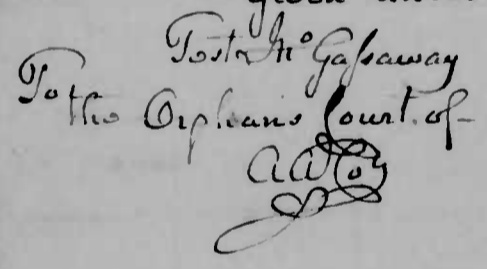 Jno Gaſsaway
To
the Orphans Court of
A A Coy